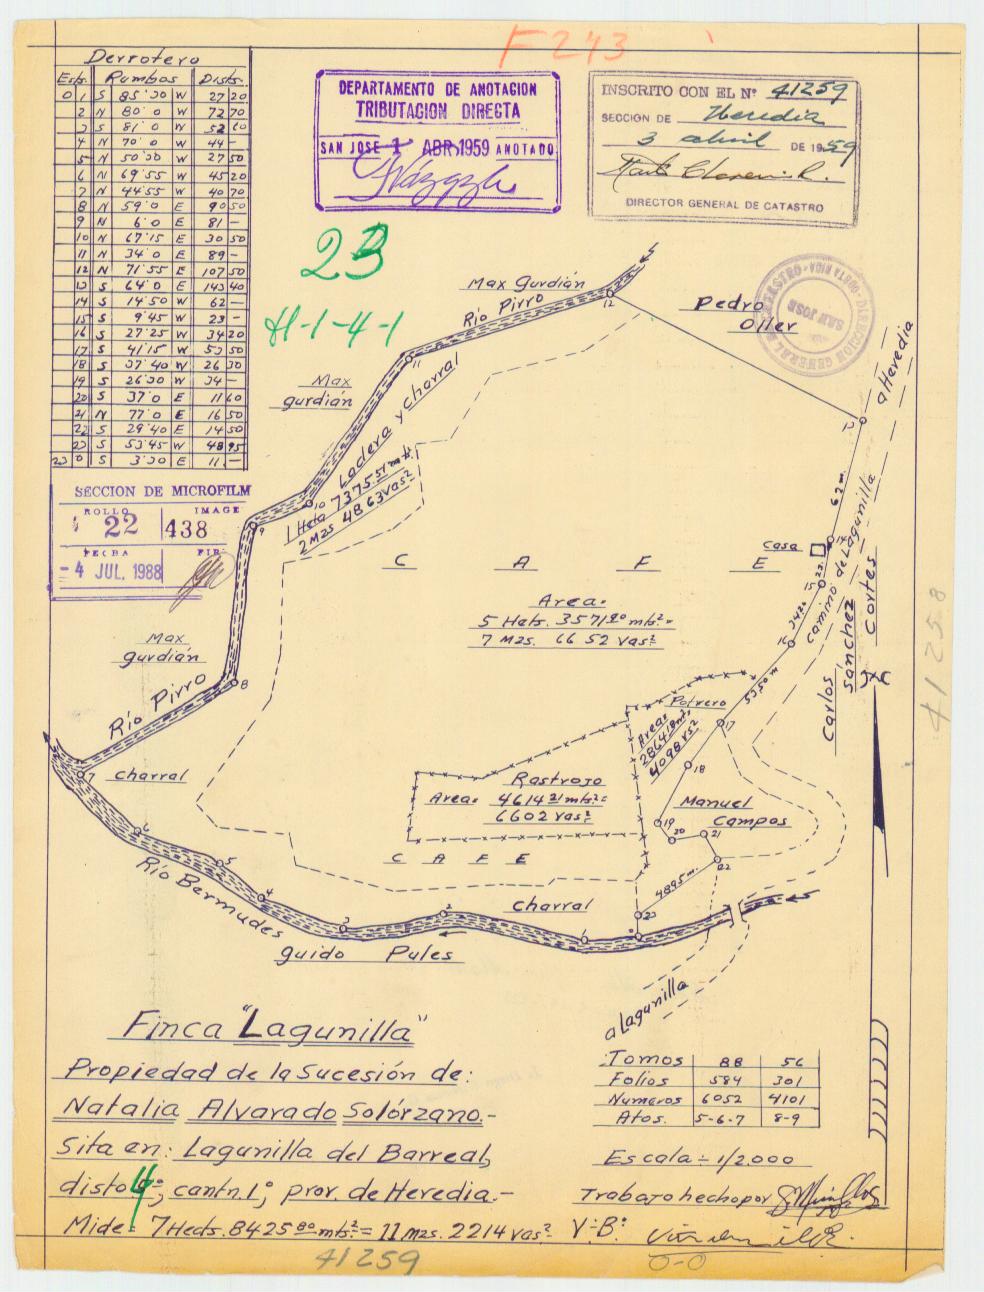 F 243
Derrotero
Ests. Rumbos Dists.
0 1 S 85°30 W 27 20
2 N 80°0 W 72 70
3 S 81°0 W 52 60
4 N 70°0 W 44 -
5 N 50°30 W 27 50
6 N 69°55 W 45 20
7 N 44°55 W 40 70
8 N 59°0 E 90 50
9 N 6°0 E 81 -
10 N 67°15 E 30 50
11 N 34°0 E 89 -
12 N 71°55 E 107 50
13 S 64°0 E 143 40
14 S 14°50 W 62 -
15 S 9°45 W 23 -
16 S 27°25 W 34 20
17 S 41°15 W 53 50
18 S 37°40 W 26 30
19 S 26°30 W 34 -
20 S 37°0 E 11 60
21 N 77°0 E 16 50
22 S 29°40 E 14 50
23 S 53°45 W 48 95
23 0 S 3°30 E 11 -
DEPARTAMENTO DE ANOTACION
TRIBUTACION DIRECTA
SAN JOSE 1 ABR 1959 ANOTADO
INSCRITO CON EL Nº 41259
SECCION DE Heredia
3 abril DE 1959
DIRECTOR GENERAL DE CATASTRO
23
H-1-4-1
DIRECCION GENERAL DE CATASTRO · COSTA RICA ·
SAN JOSE
SECCION DE MICROFILM
ROLLO IMAGE
22 438
FECHA FIR
- 4 JUL. 1988
Max Gurdián
Río Pirro
12
Pedro
Oller
a Heredia
Max
gurdián
11
Ladera y Charral
1 Heta 7375 51 mts.²
2 Mzs. 4863 vas²
10
9
13
62 m.
Casa
14
23.
15
34.20
16
Camino de Lagunilla
Carlos
Sánchez
Cortes
C A F E
Area=
5 Hets. 3571 20 mts.²=
7 Mzs. 6652 vas²
Max
gurdián
8
Río Pirro
53.50 m
17
Potrero
Area=
2864 18 m²
4098 vs²
18
7
Charral
Rastrojo
Area= 4614 21 mts.²=
6602 vas²
Manuel
Campos
19
20
21
22
6
5
C A F E
48.95 m.
Río Bermudes
4
3
2
Charral
23
1
0
guido Pules
a Lagunilla
41258
Finca "Lagunilla"
Propiedad de la Sucesión de:
Natalia Alvarado Solórzano.-
Sita en: Lagunilla del Barreal,
disto 4º, cantn. 1º, prov. de Heredia.-
Mide: 7 Hects. 8425 80 mts.² = 11 mzs. 2214 vas²
Tomos 88 56
Folios 584 301
Numeros 6052 4101
Atos. 5-6-7 8-9
Escala ÷ 1/2.000
Trabajo hecho por
V.B.
41259
0-0